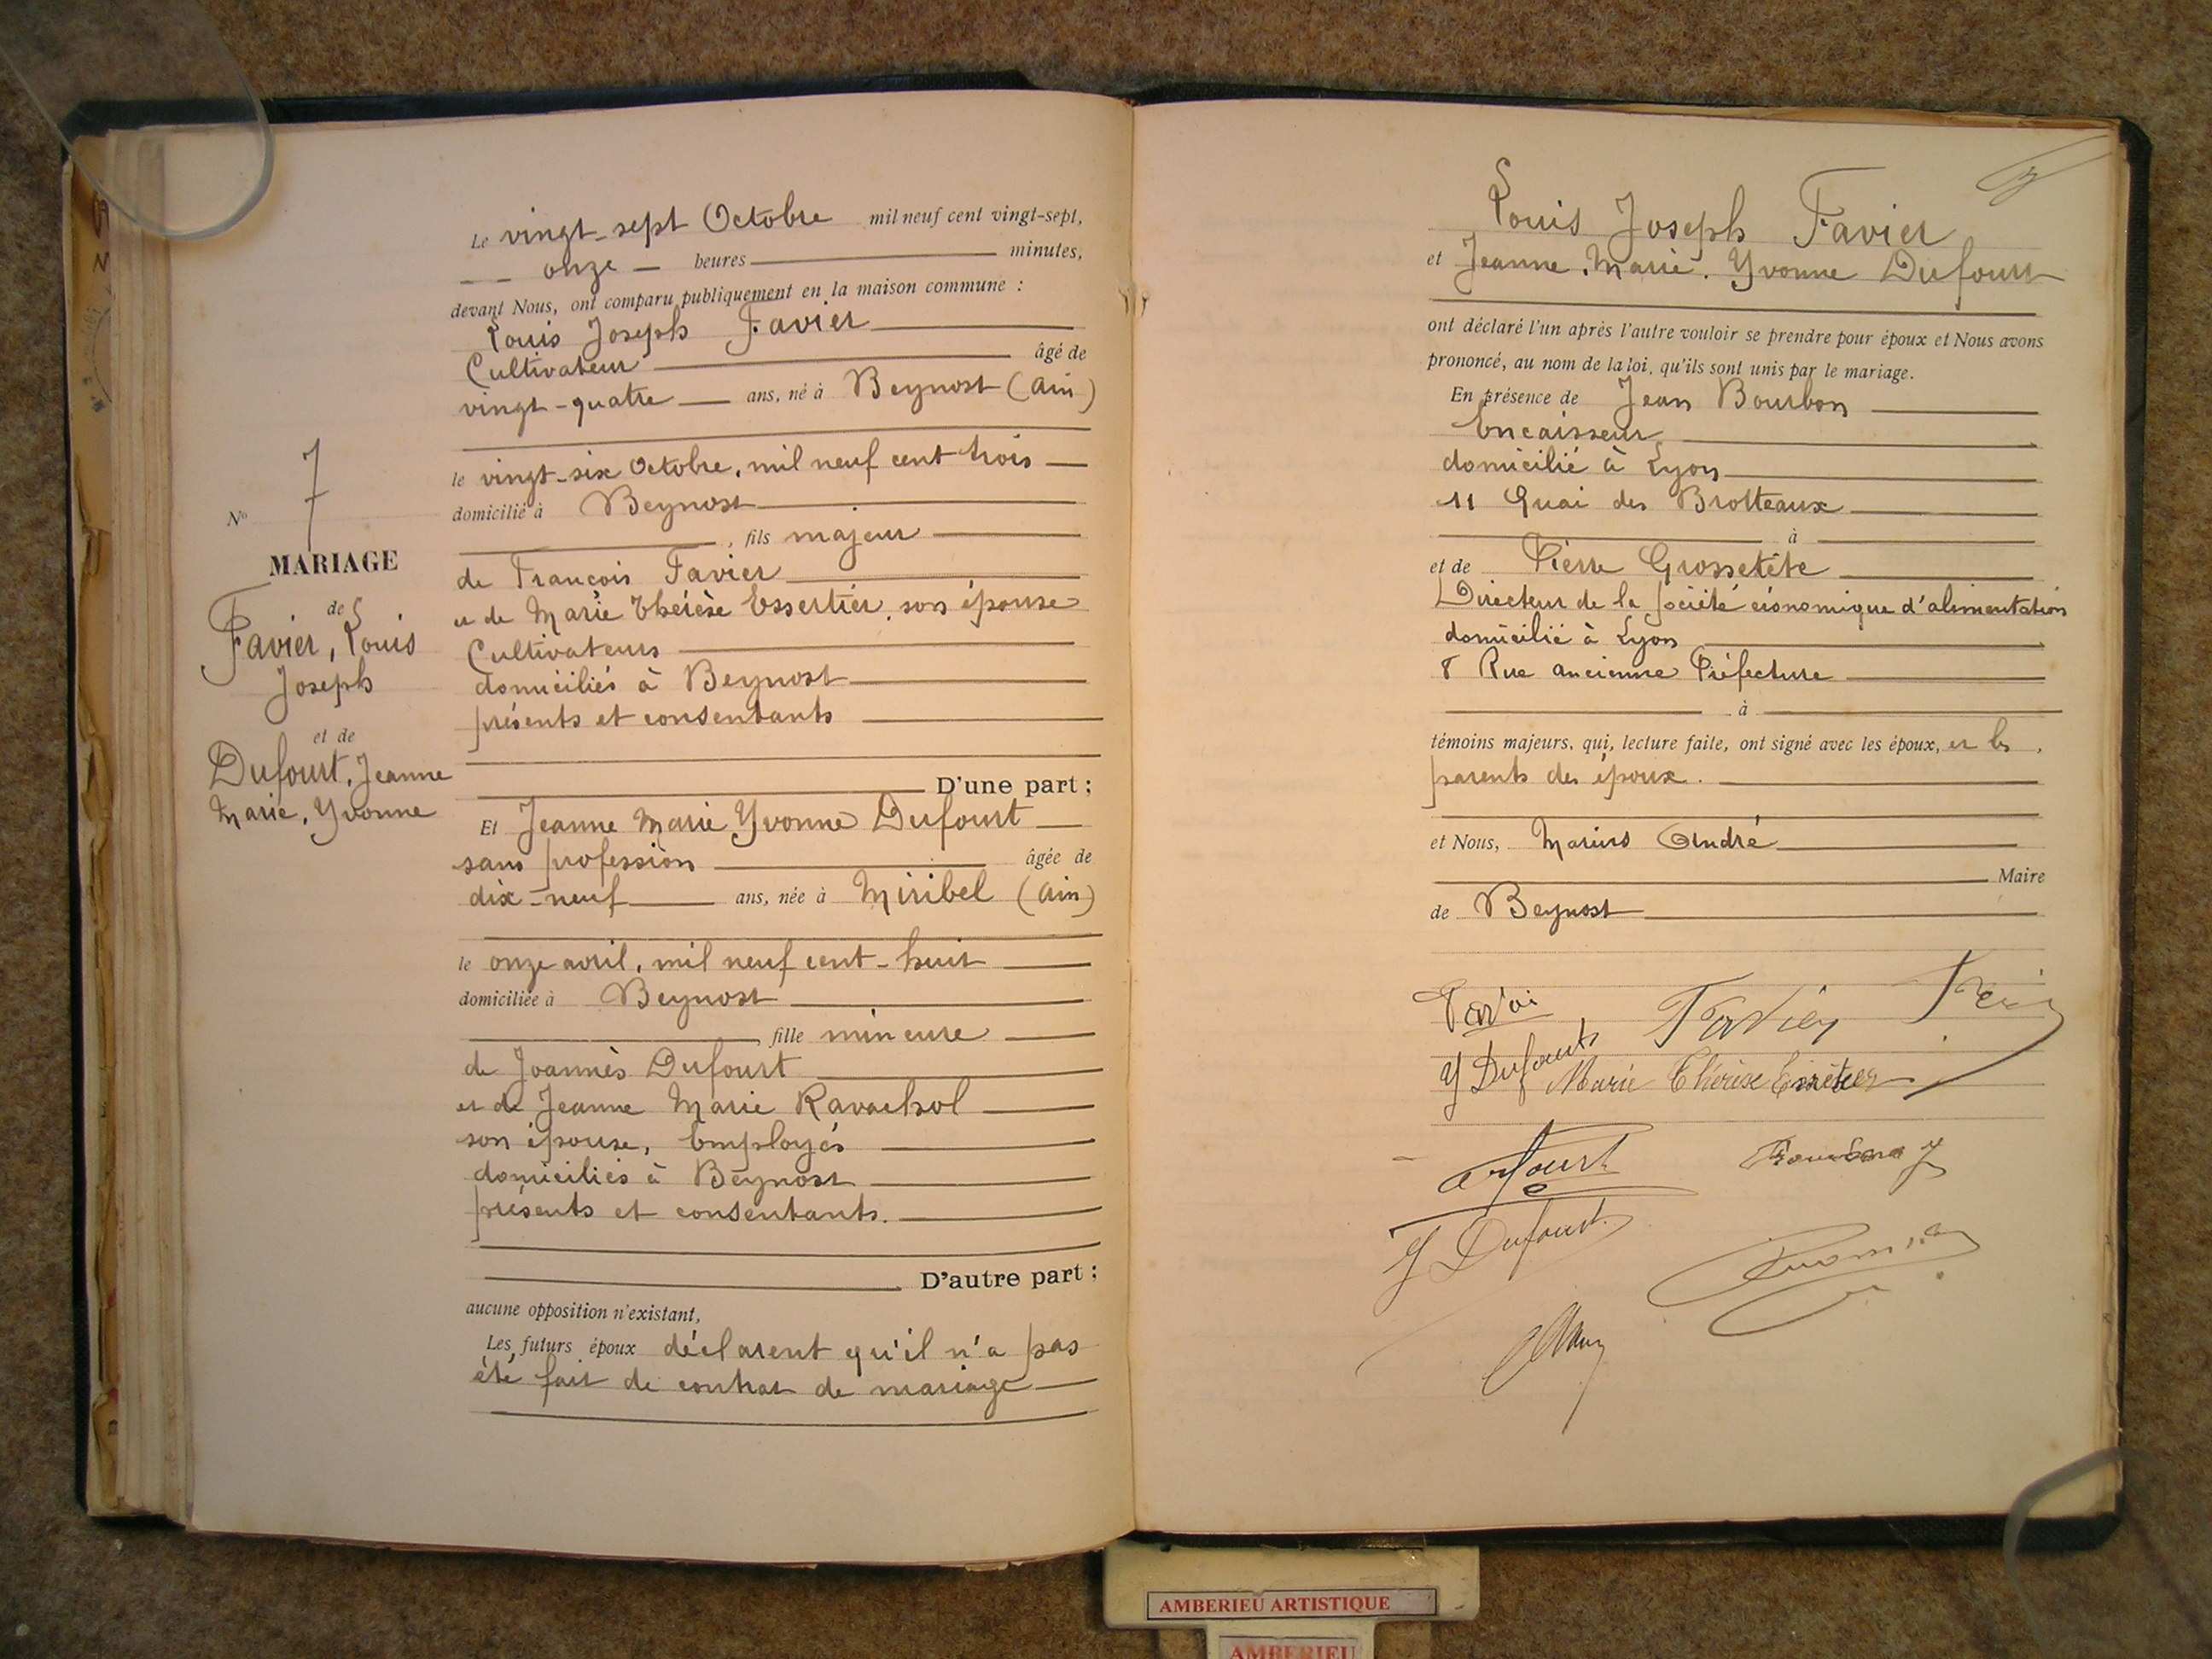 Le vingt-sept Octobre mil neuf cent vingt-sept,
onze heures minutes,
devant Nous, ont comparu publiquement en la maison commune :
Louis Joseph Favier
Cultivateur âgé de
vingt-quatre ans, né à Beynost (Ain)
le vingt-six Octobre, mil neuf cent trois
domicilié à Beynost
, fils majeur
de François Favier
et de Marie Thérèse Essertier, son épouse
Cultivateurs
domiciliés à Beynost
présents et consentants
D'une part ;
Et Jeanne Marie Yvonne Dufourt
sans profession âgée de
dix-neuf ans, née à Miribel (Ain)
le onze avril, mil neuf cent-huit
domiciliée à Beynost
, fille mineure
de Joannès Dufourt
et de Jeanne Marie Ravachol
son épouse, Employés
domiciliés à Beynost
présents et consentants.
D'autre part ;
aucune opposition n'existant,
Les futurs époux déclarent qu'il n'a pas
été fait de contrat de mariage
No 7
MARIAGE
de
Favier, Louis
Joseph
et de
Dufourt, Jeanne
Marie, Yvonne
Louis Joseph Favier
et Jeanne, Marie, Yvonne Dufourt
ont déclaré l'un après l'autre vouloir se prendre pour époux et Nous avons
prononcé, au nom de la loi, qu'ils sont unis par le mariage.
En présence de Jean Bourbon
Encaisseur
domicilié à Lyon
11 Quai des Brotteaux
à
et de Pierre Grossetête
Directeur de la Société économique d'alimentation
domicilié à Lyon
8 Rue ancienne Préfecture
à
témoins majeurs, qui, lecture faite, ont signé avec les époux, et les
parents des époux.
et Nous, Marius André
Maire
de Beynost
Favier
Y Dufourt
Marie Thérèse Essertier
Dufourt
J Dufourt
AMBERIEU ARTISTIQUE
AMBERIEU